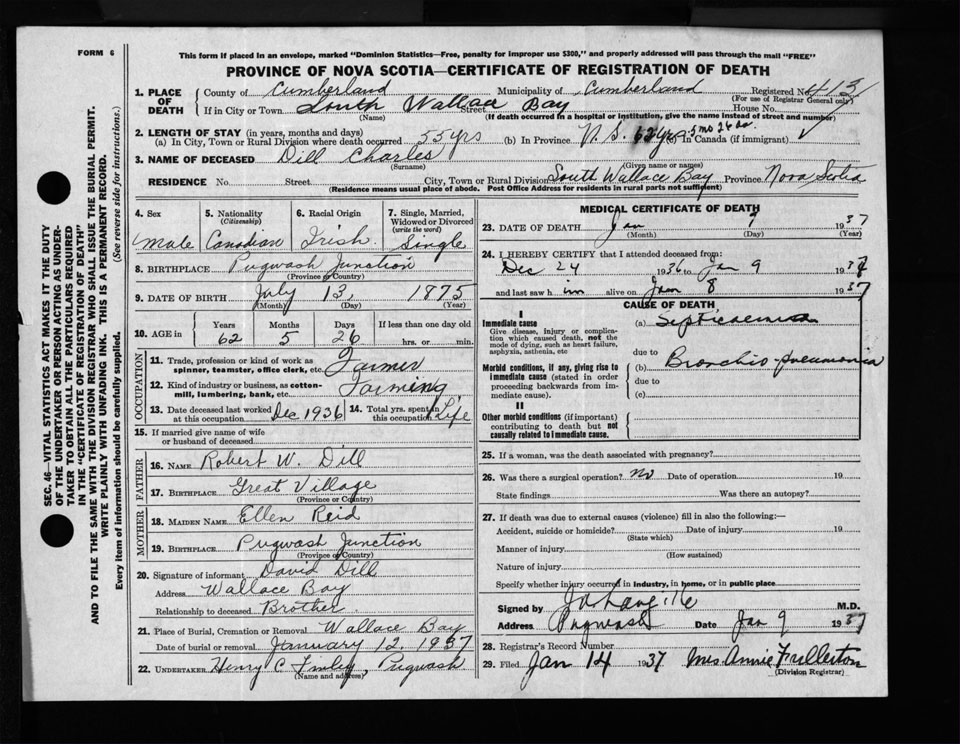 FORM 6
This form if placed in an envelope, marked "Dominion Statistics—Free, penalty for improper use $300," and properly addressed will pass through the mail "FREE"
PROVINCE OF NOVA SCOTIA—CERTIFICATE OF REGISTRATION OF DEATH
SEC. 46—VITAL STATISTICS ACT MAKES IT THE DUTY
OF THE UNDERTAKER OR PERSON ACTING AS UNDER-
TAKER TO OBTAIN ALL THE PARTICULARS REQUIRED
IN THE "CERTIFICATE OF REGISTRATION OF DEATH"
AND TO FILE THE SAME WITH THE DIVISION REGISTRAR WHO SHALL ISSUE THE BURIAL PERMIT.
WRITE PLAINLY WITH UNFADING INK. THIS IS A PERMANENT RECORD.
Every item of information should be carefully supplied. (See reverse side for instructions.)
1. PLACE OF DEATH County of Cumberland Municipality of Cumberland Registered No. 413
(For use of Registrar General only)
If in City or Town South Wallace Bay Street House No.
(Name) (If death occurred in a hospital or institution, give the name instead of street and number)
2. LENGTH OF STAY (in years, months and days)
(a) In City, Town or Rural Division where death occurred 55 yrs (b) In Province N.S. 62 yrs 5 mo 26 da (c) In Canada (if immigrant)
3. NAME OF DECEASED Dill Charles
(Surname) (Given name or names)
RESIDENCE No. Street City, Town or Rural Division South Wallace Bay Province Nova Scotia
(Residence means usual place of abode. Post Office Address for residents in rural parts not sufficient)
4. Sex 5. Nationality (Citizenship) 6. Racial Origin 7. Single, Married, Widowed or Divorced (write the word)
Male Canadian Irish Single
8. BIRTHPLACE Pugwash Junction
(Province or Country)
9. DATE OF BIRTH July 13, 1875
(Month) (Day) (Year)
10. AGE in Years Months Days If less than one day old
62 5 26 hrs. or min.
OCCUPATION
11. Trade, profession or kind of work as spinner, teamster, office clerk, etc. Farmer
12. Kind of industry or business, as cotton-mill, lumbering, bank, etc. Farming
13. Date deceased last worked at this occupation Dec 1936 14. Total yrs. spent in this occupation Life
15. If married give name of wife or husband of deceased
FATHER
16. NAME Robert W. Dill
17. BIRTHPLACE Great Village
(Province or Country)
MOTHER
18. MAIDEN NAME Ellen Reid
19. BIRTHPLACE Pugwash Junction
(Province or Country)
20. Signature of informant David Dill
Address Wallace Bay
Relationship to deceased Brother
21. Place of Burial, Cremation or Removal Wallace Bay
Date of burial or removal January 12, 1937
22. UNDERTAKER Henry C. Pugwash
(Name and address)
MEDICAL CERTIFICATE OF DEATH
23. DATE OF DEATH Jan 9 1937
(Month) (Day) (Year)
24. I HEREBY CERTIFY that I attended deceased from:
Dec 24 1936 to Jan 9 1937
and last saw him alive on Jan 8 1937
CAUSE OF DEATH
I
Immediate cause (a) Septicaemia
Give disease, injury or complication which caused death, not the mode of dying, such as heart failure, asphyxia, asthenia, etc
due to
(b) Bronchio-pneumonia
Morbid conditions, if any, giving rise to immediate cause (stated in order proceeding backwards from immediate cause).
due to
(c)
II
Other morbid conditions (if important) contributing to death but not causally related to immediate cause.
25. If a woman, was the death associated with pregnancy?
26. Was there a surgical operation? No Date of operation 19
State findings Was there an autopsy?
27. If death was due to external causes (violence) fill in also the following:—
Accident, suicide or homicide? Date of injury 19
(State which)
Manner of injury
(How sustained)
Nature of injury
Specify whether injury occurred in industry, in home, or in public place
Signed by M.D.
Address Pugwash Date Jan 9 1937
28. Registrar's Record Number
29. Filed Jan 14 1937 Mrs. Annie Fullerton
(Division Registrar)